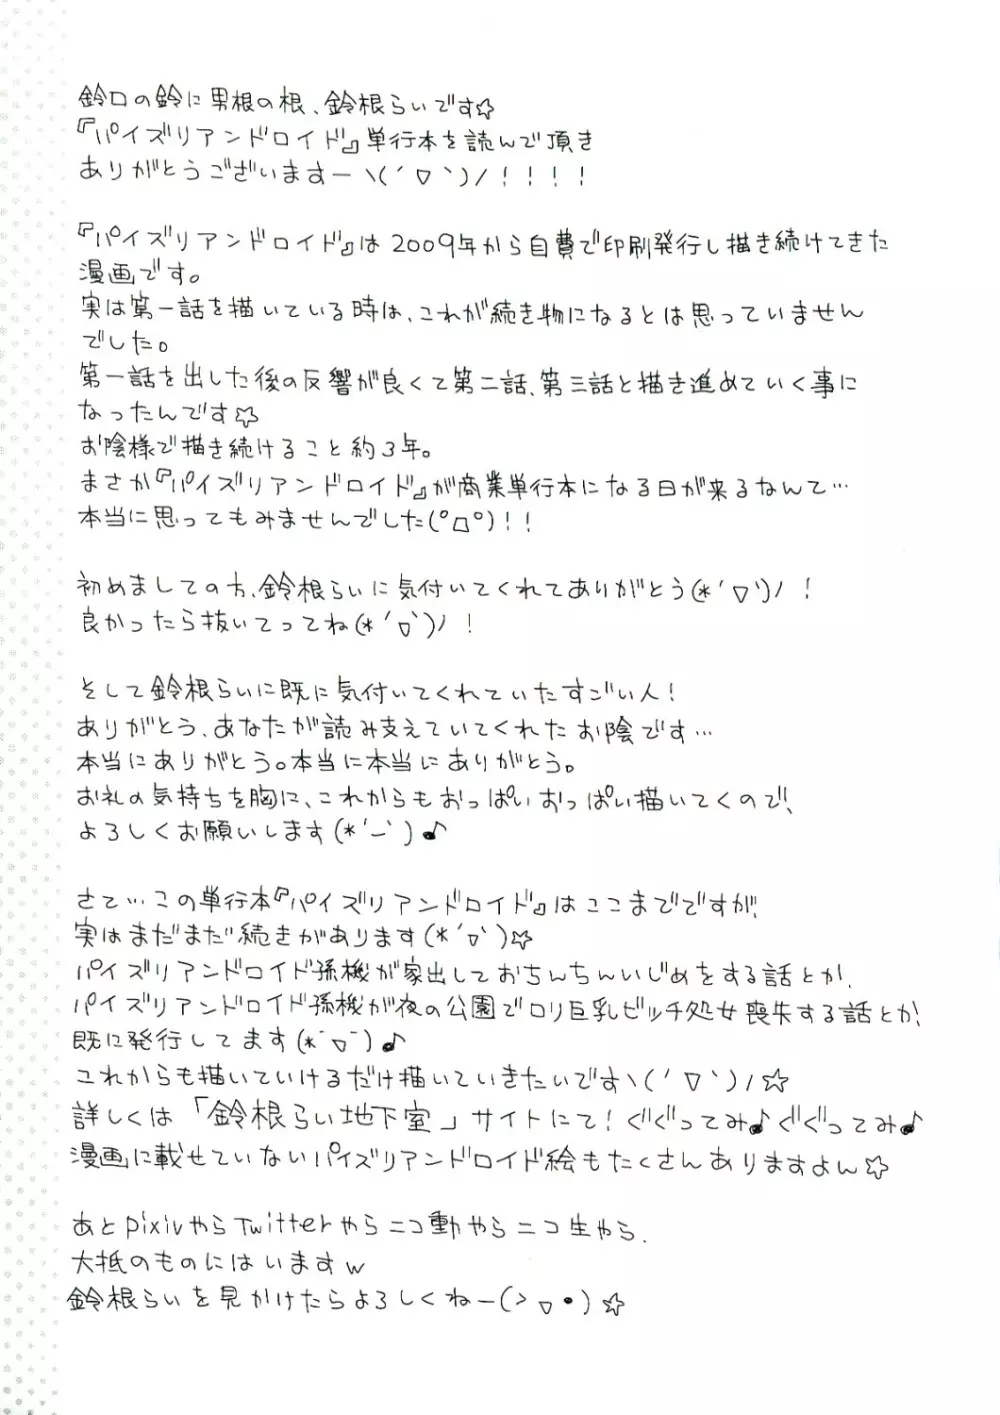 鈴口の鈴に男根の根、鈴根らいです☆
『パイズリアンドロイド』単行本を読んで頂き
ありがとうございますーヽ(´▽`)ﾉ！！！！
『パイズリアンドロイド』は2009年から自費で印刷発行し描き続けてきた
漫画です。
実は第一話を描いている時は、これが続き物になるとは思っていません
でした。
第一話を出した後の反響が良くて第二話、第三話と描き進めていく事に
なったんです☆
お陰様で描き続けること約3年。
まさか『パイズリアンドロイド』が商業単行本になる日が来るなんて…
本当に思ってもみませんでした(°□°)！！
初めましての方、鈴根らいに気付いてくれてありがとう(*´▽`)ﾉ！
良かったら抜いてってね(*´▽`)ﾉ！
そして鈴根らいに既に気付いてくれていたすごい人！
ありがとう、あなたが読み支えていてくれたお陰です…
本当にありがとう。本当に本当にありがとう。
お礼の気持ちを胸に、これからもおっぱいおっぱい描いてくので、
よろしくお願いします(*´ー`)♪
さて…この単行本『パイズリアンドロイド』はここまでですが、
実はまだまだ続きがあります(*´▽`)☆
パイズリアンドロイド孫機が家出しておちんちんいじめをする話とか、
パイズリアンドロイド孫機が夜の公園でロリ巨乳ビッチ処女喪失する話とか、
既に発行してます(*´▽`)♪
これからも描いていけるだけ描いていきたいですヽ(´▽`)ﾉ☆
詳しくは「鈴根らい地下室」サイトにて！ぐぐってみ♪ぐぐってみ♪
漫画に載せていないパイズリアンドロイド絵もたくさんありますよん☆
あとpixivやらTwitterやらニコ動やらニコ生やら、
大抵のものにはいますw
鈴根らいを見かけたらよろしくねー(>▽•)☆